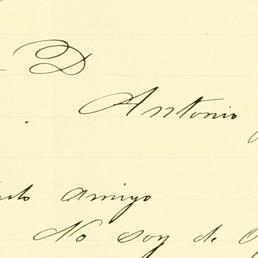 D
Antonio
amigo
No soy de